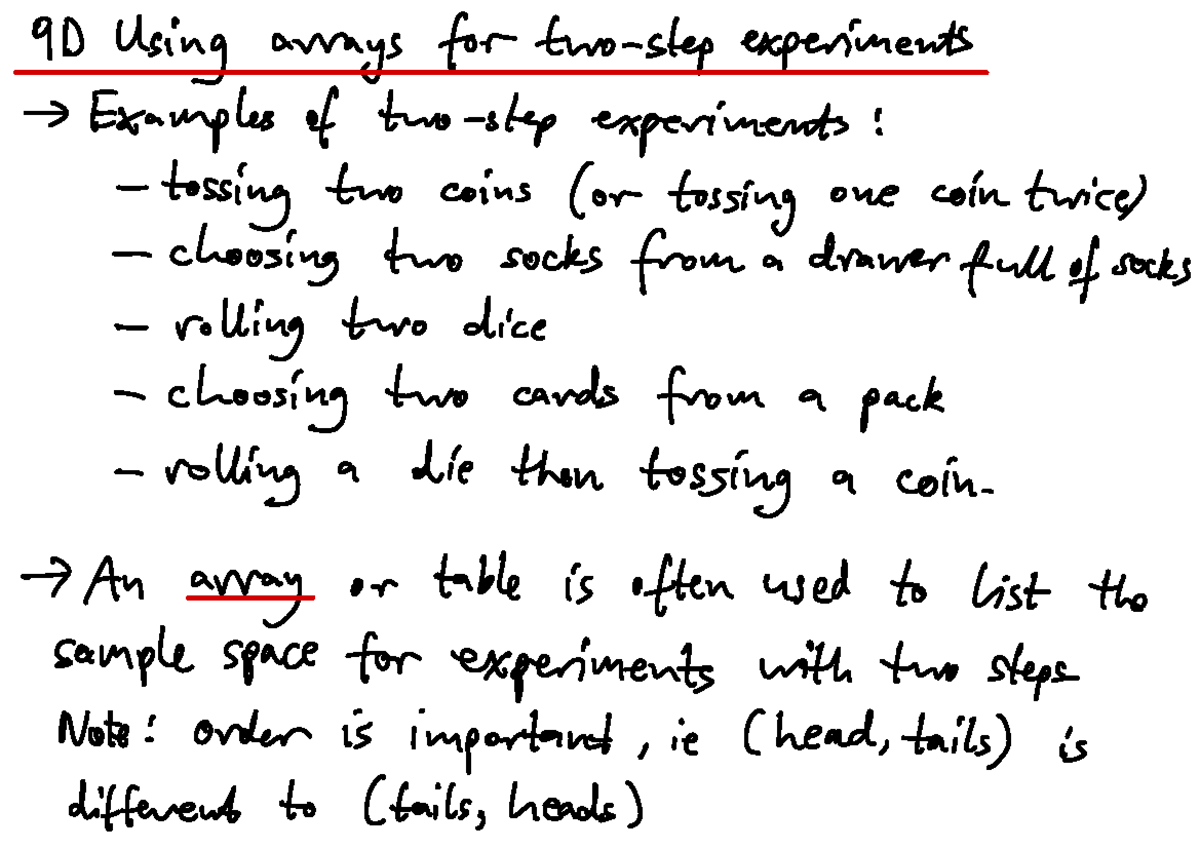 9D Using arrays for two-step experiments
→ Examples of two-step experiments:
- tossing two coins (or tossing one coin twice)
- choosing two socks from a drawer full of socks
- rolling two dice
- choosing two cards from a pack
- rolling a die then tossing a coin.
→ An array or table is often used to list the
sample space for experiments with two steps
Note: order is important, ie (head, tails) is
different to (tails, heads)